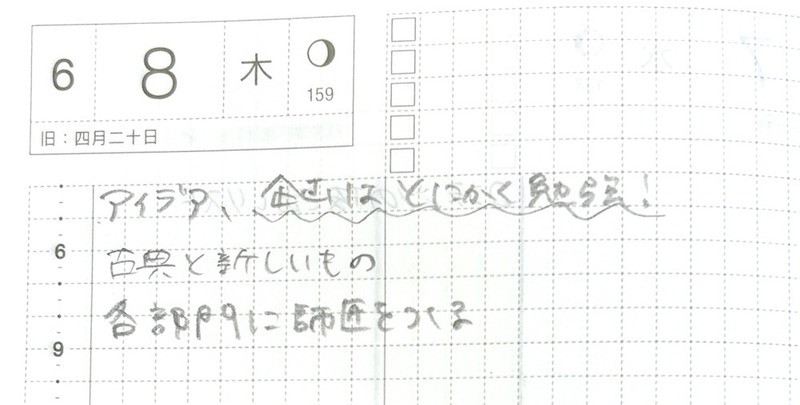 6 8 木
159
旧：四月二十日
アイデア、企画はとにかく勉強！
6
古典と新しいもの
各部門に師匠をつくる
9